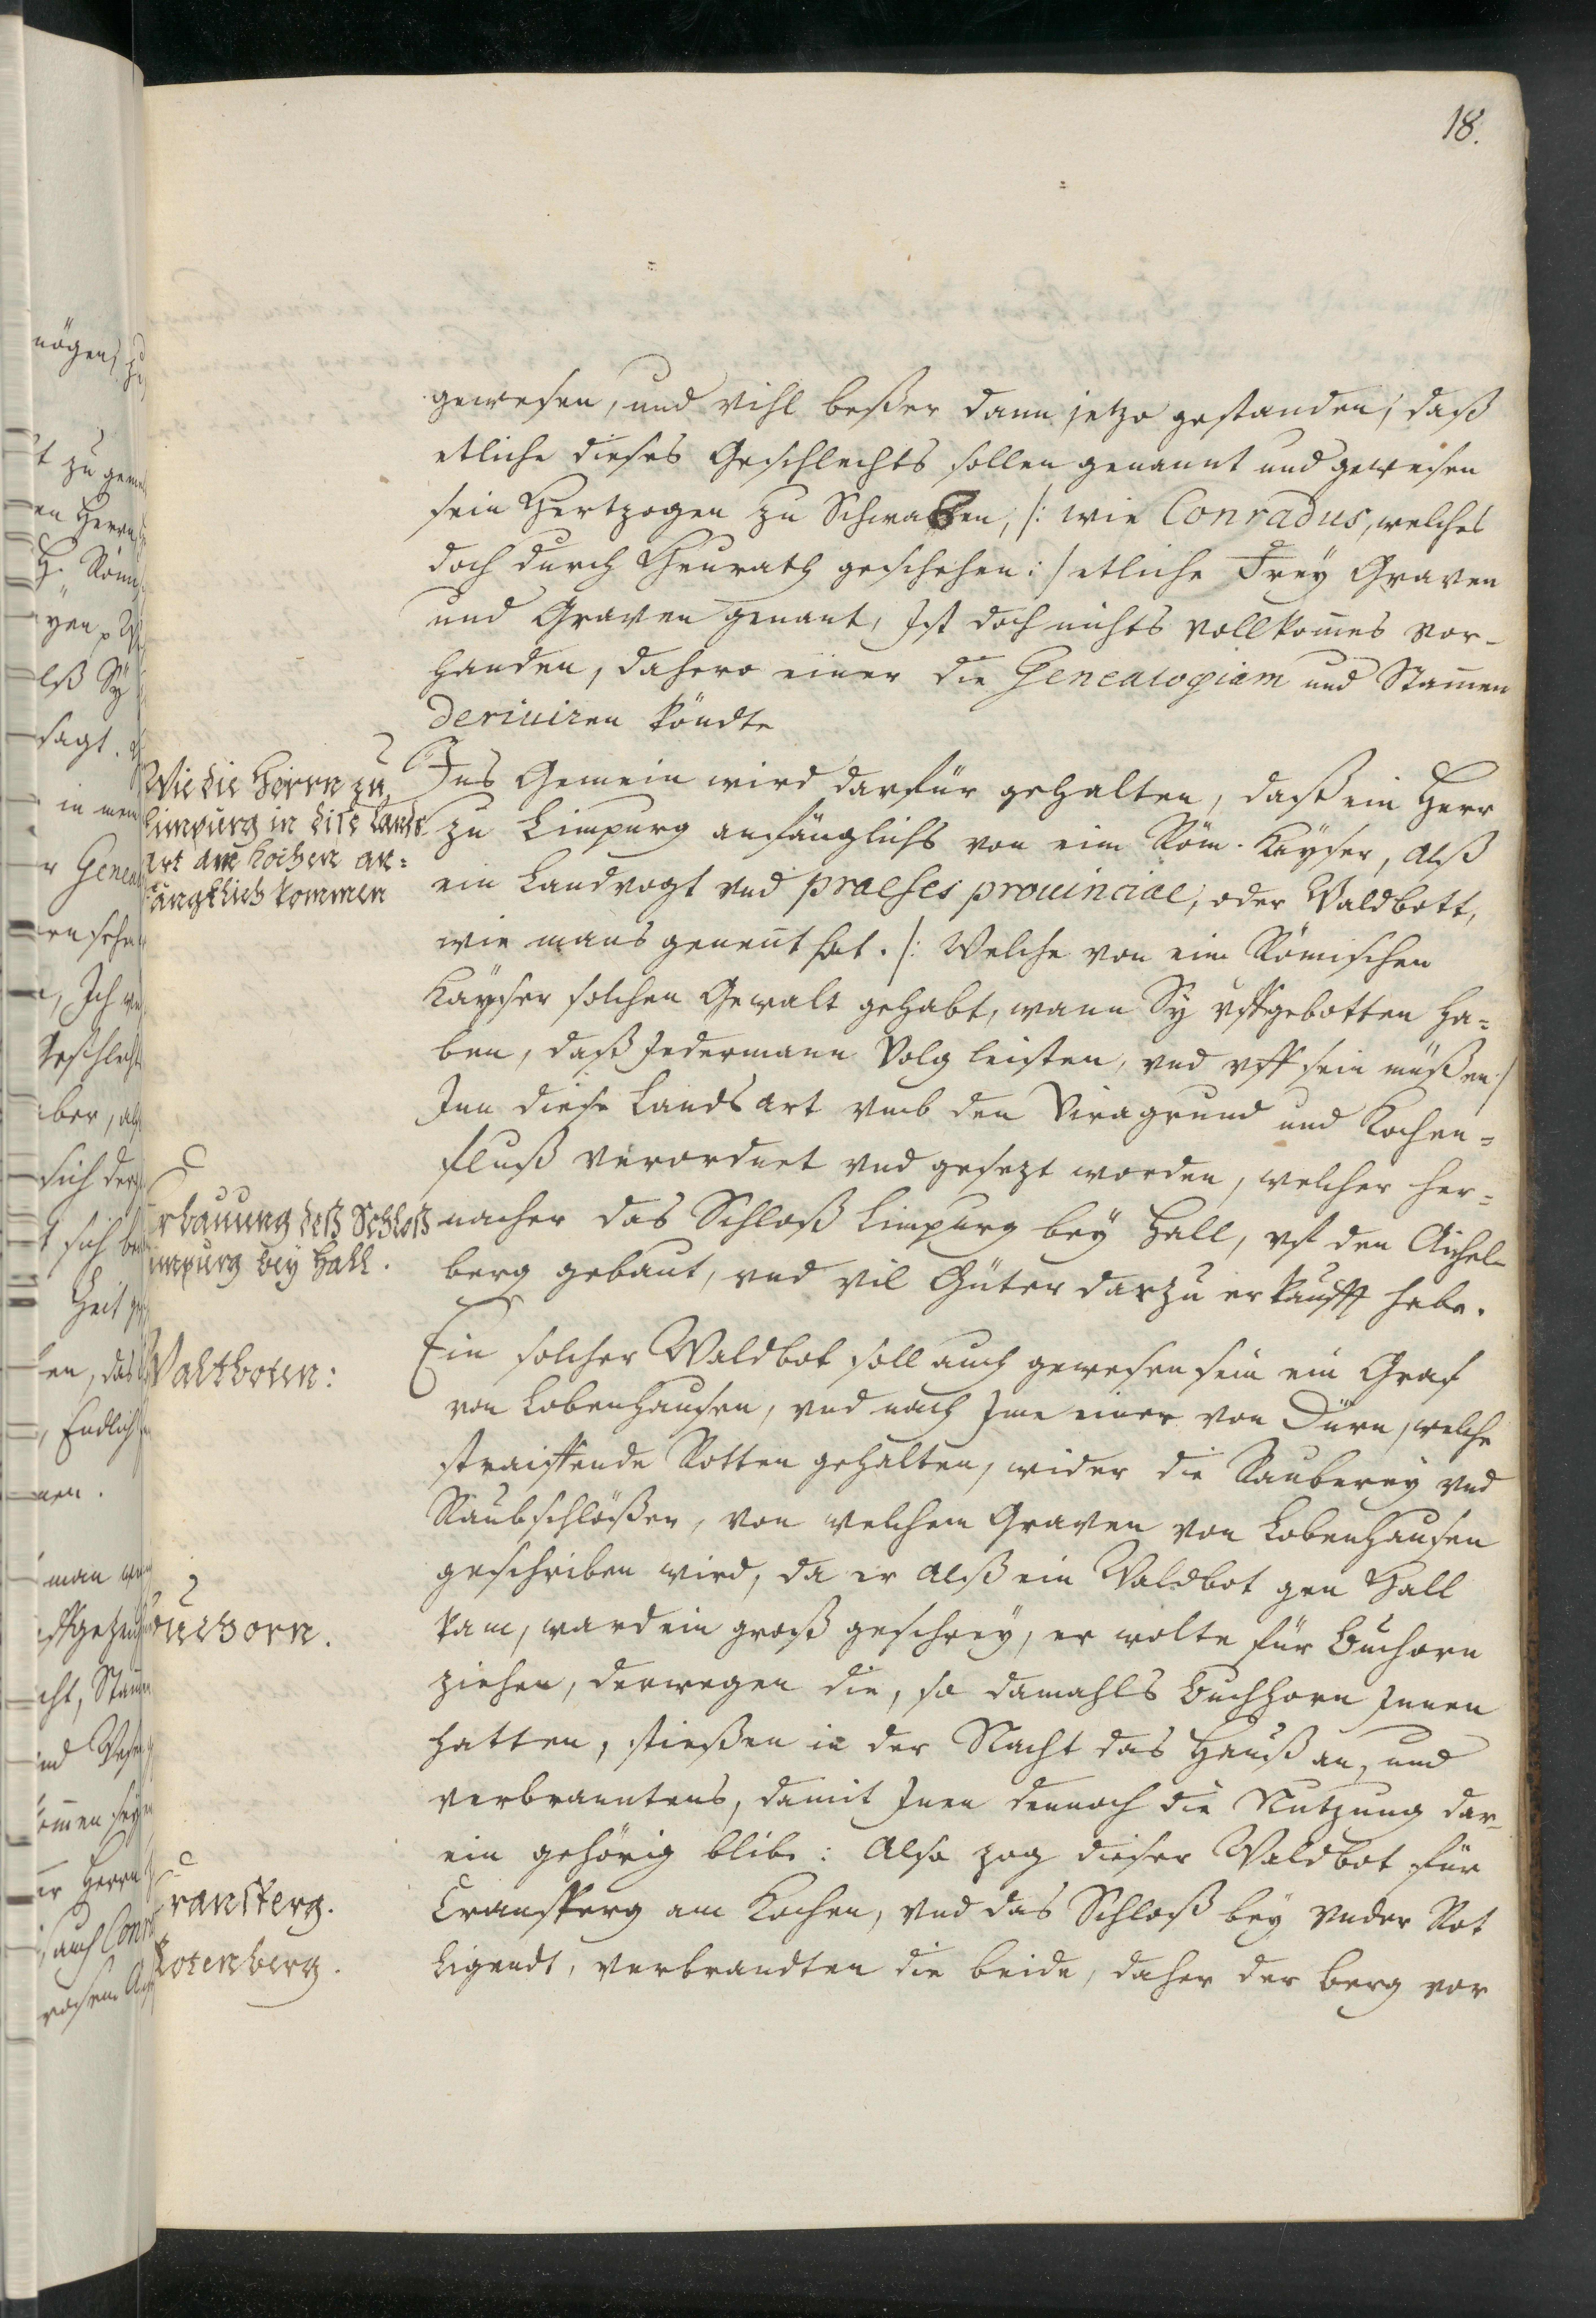 18.
gewesen, und vihl beßer dann jetzo gestanden, daß
etliche dieses Geschlechts sollen genannt und gewesen
sein Hertzogen zu Schwaben, /: wie Conradus, welches
doch durch Heurath geschehen :/ etliche Frey Graven
und Graven genant, Ist doch nichts vollkom̄es vor-
handen, dahero einer die Genealogiam und Stam̄en
deriuiren köndte
Wie die Herrn zu
Limpurg in dise Lands
art am Kochen an-
fängklich kommen
Ins Gemein wird darfür gehalten, daß ein Herr
zu Limpurg anfänglichs von eim Röm. Kayser, alß
ein Landvogt vnd praeses prouinciae, oder Waldbott,
wie mans genent hat. /: Welche von eim Römischen
Kayser solchen Gewalt gehabt, wann Sy vffgebotten ha-
ben, daß Jedermann Volg leisten, vnd vff sein müßen :/
Inn diese Lands art vmb den Viragrund und Kochen-
fluß verordnet vnd gesezt worden, welcher her-
Erbauung deß Schloß
Limpurg bey Hall.
nacher das Schloß Limpurg bey Hall, vf den Aichel-
berg gebaut, vnd vil Güter darzu erkaufft habe.
Waltboten:
Ein solcher Waldbot soll auch gewesen sein ein Graf
von Lobenhausen, vnd nach Ime einer von Dürn, welche
straiffende Rotten gehalten, wider die Rauberey vnd
Raubschlößer, von welchem Graven von Lobenhausen
geschriben wird, da er alß ein Waldbot gen Hall
Buchorn.
kam, ward ein groß geschrey, er wolte für Buchorn
ziehen, derwegen die, so damahls Buchhorn Innen
hatten, stießen in der Nacht das Hauß an, und
verbranntens, damit Inen dennoch die Nutzung dar-
ein gehörig blibe: Also zog dieser Waldbot für
Cransperg.
Cransperg am Kochen, vnd das Schloß bey vnder Rot
Rotenberg.
Ligendt, verbrandten die beide, daher der berg vor